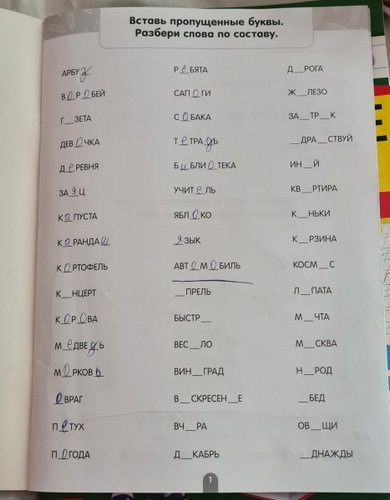 Вставь пропущенные буквы.
Разбери слова по составу.
АРБУз
ВоРоБЕЙ
Г__ЗЕТА
ДЕВоЧКА
ДеРЕВНЯ
ЗАяЦ
КаПУСТА
КаРАНДАш
КоРТОФЕЛЬ
К__НЦЕРТ
КоРоВА
МеДВЕдЬ
МоРКОВь
оВРАГ
ПеТУХ
ПоГОДА
РеБЯТА
САПоГИ
СоБАКА
ТеТРАдЬ
БиБЛИоТЕКА
УЧИТеЛЬ
ЯБЛоКО
яЗЫК
АВТоМоБИЛЬ
__ПРЕЛЬ
БЫСТР__
ВЕС__ЛО
ВИН__ГРАД
В__СКРЕСЕН__Е
ВЧ__РА
Д__КАБРЬ
Д__РОГА
Ж__ЛЕЗО
ЗА__ТР__К
__ДРА__СТВУЙ
ИН__Й
КВ__РТИРА
К__НЬКИ
К__РЗИНА
КОСМ__С
Л__ПАТА
М__ЧТА
М__СКВА
Н__РОД
__БЕД
ОВ__ЩИ
__ДНАЖДЫ
1